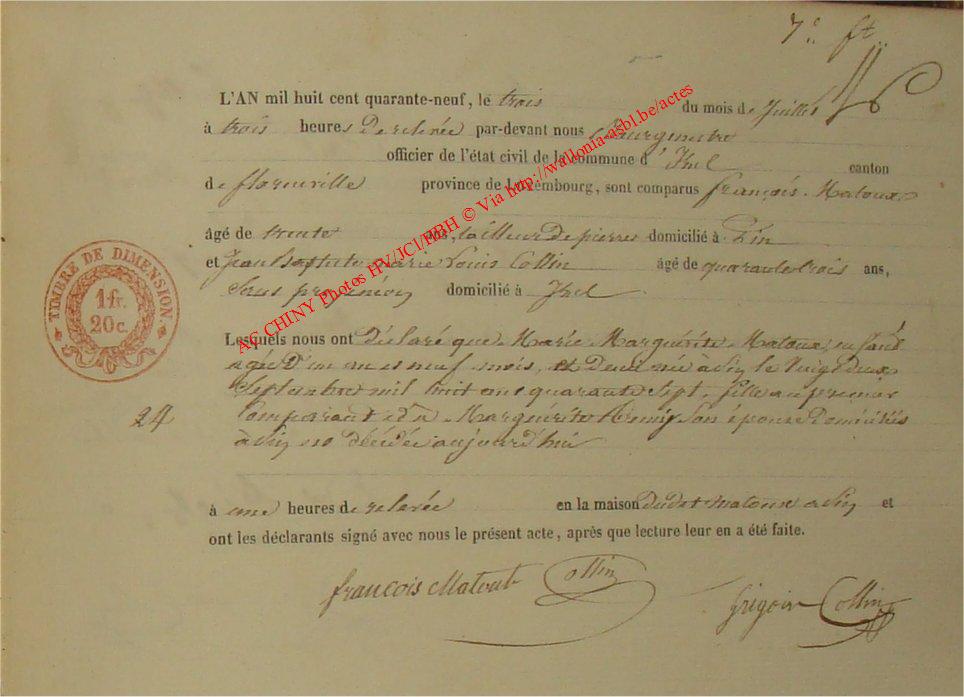 7e ft
L'AN mil huit cent quarante-neuf, le trois du mois de Juillet
à trois heures de relevée par-devant nous Bourgmestre
officier de l'état civil de la commune d'Izel canton
de florenville province de Luxembourg, sont comparus françois Matoux
âgé de trente ans, tailleur de pierres domicilié à Pin
et Jean Baptiste Marie Louis Collin âgé de quarante trois ans,
Sans profession domicilié à Izel
Lesquels nous ont Déclaré que Marie Margueritte Matoux, enfant
agée d'un an neuf mois, et Deux née à Pin le Vingt deux
Septembre mil huit cent quarante Sept, fille au premier
Comparant et de Margueritte Son épouse Domiciliés
à Pin est décédée aujourd'hui
à une heures de relevée en la maison dudit Matoux a Pin et
ont les déclarants signé avec nous le présent acte, après que lecture leur en a été faite.
françois Matout Collin
Grégoir Collin
24
TIMBRE DE DIMENSION.
1 fr.
20 c.
AG CHINY Photos HPV/JCl/HBH © Via http://wallonia-asbl.be/actes